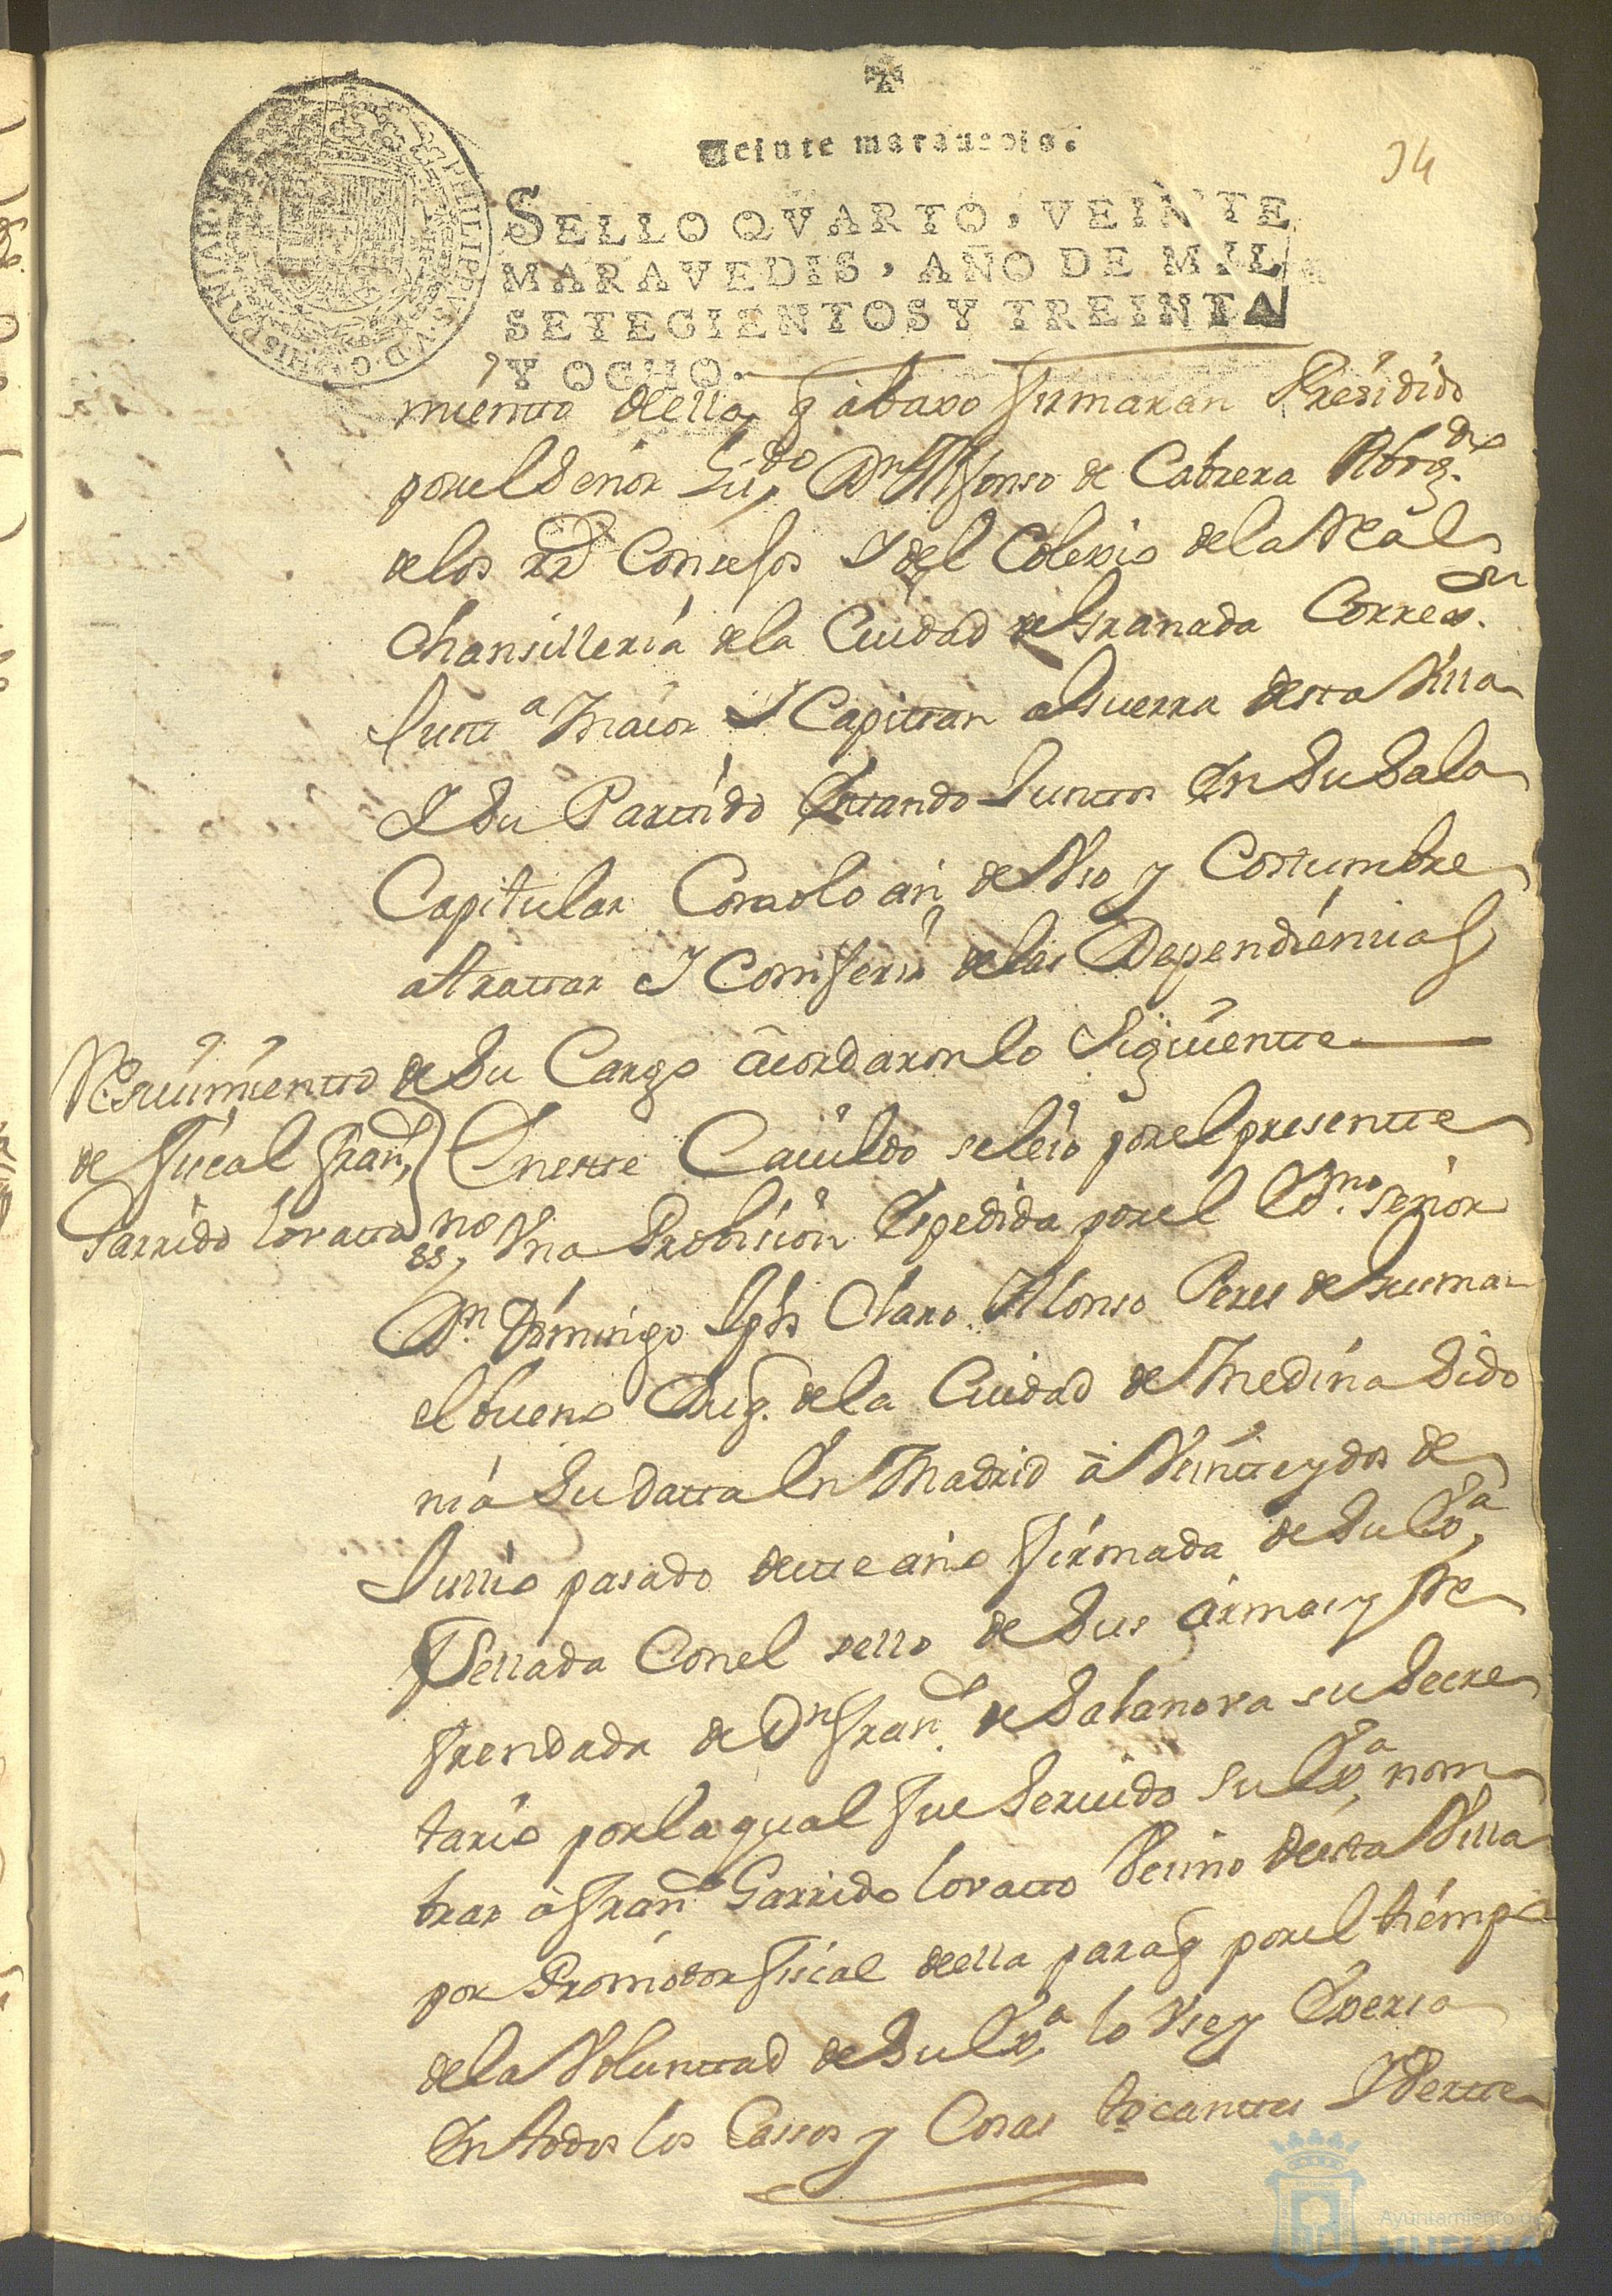 Veinte maravedis.
34
SELLO QVARTO, VEINTE
MARAVEDIS, AÑO DE MIL
SETECIENTOS Y TREINTA
Y OCHO.
PHILIPPVS V D G HISPANIAR
miento della, q abaxo firmaran Presidido
por el Señor Liz.do Dn Alfonso de Cabrera Abog.do
de los Rs Consejos Y del Colexio de la Real
Chansilleria de la Ciudad de Granada Correg.or
Justt.a Maior Y Capittan a Guerra desta Villa
Y Su Parttido Esttando Junttos En Su Sala
Capitular Como lo an de Vso y Costumbre
a trattar Y Conferir de las Dependienzias
de Su Cargo acordaron lo Siguientte
Resiuimientto
de fiscal Franco
Garrido Lovatto
En estte Cauildo se leio por el presentte
ssno Vna Probision Espedida por el Exmo señor
Dn Domingo Jph Claro Alonso Peres de Gusman
el bueno Duq. de la Ciudad de Medina Sido
nia Su datta En Madrid à Veintte y dos de
Junio pasado destte año firmada de Su Ex.a
Sellada Con el sello de Sus armas y Re
frendada de Dn Franco de Salanova su Secre
tario por la qual fue Seruido su Ex.a nom
brar à Franco Garrido Lovatto Vesino desta Villa
por Promotor fiscal de ella para q por el tiempo
de la Volunttad de Su Ex.a lo Vse y Exersa
En todos los Cassos y Cosas tocanttes
Ayuntamiento de
HUELVA